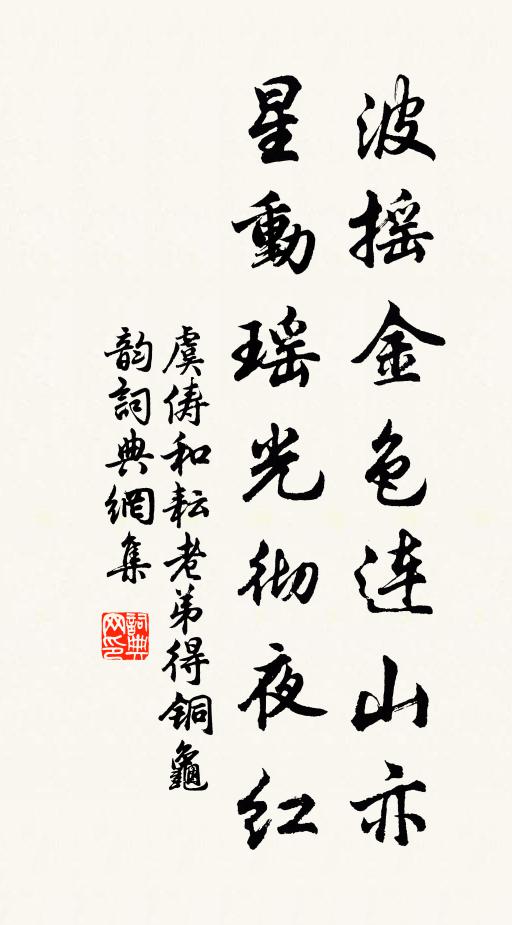 波摇金色连山亦
星動瑶光彻夜红
虞俦和耘老弟得铜龜
韵詞典網集
詞典网印